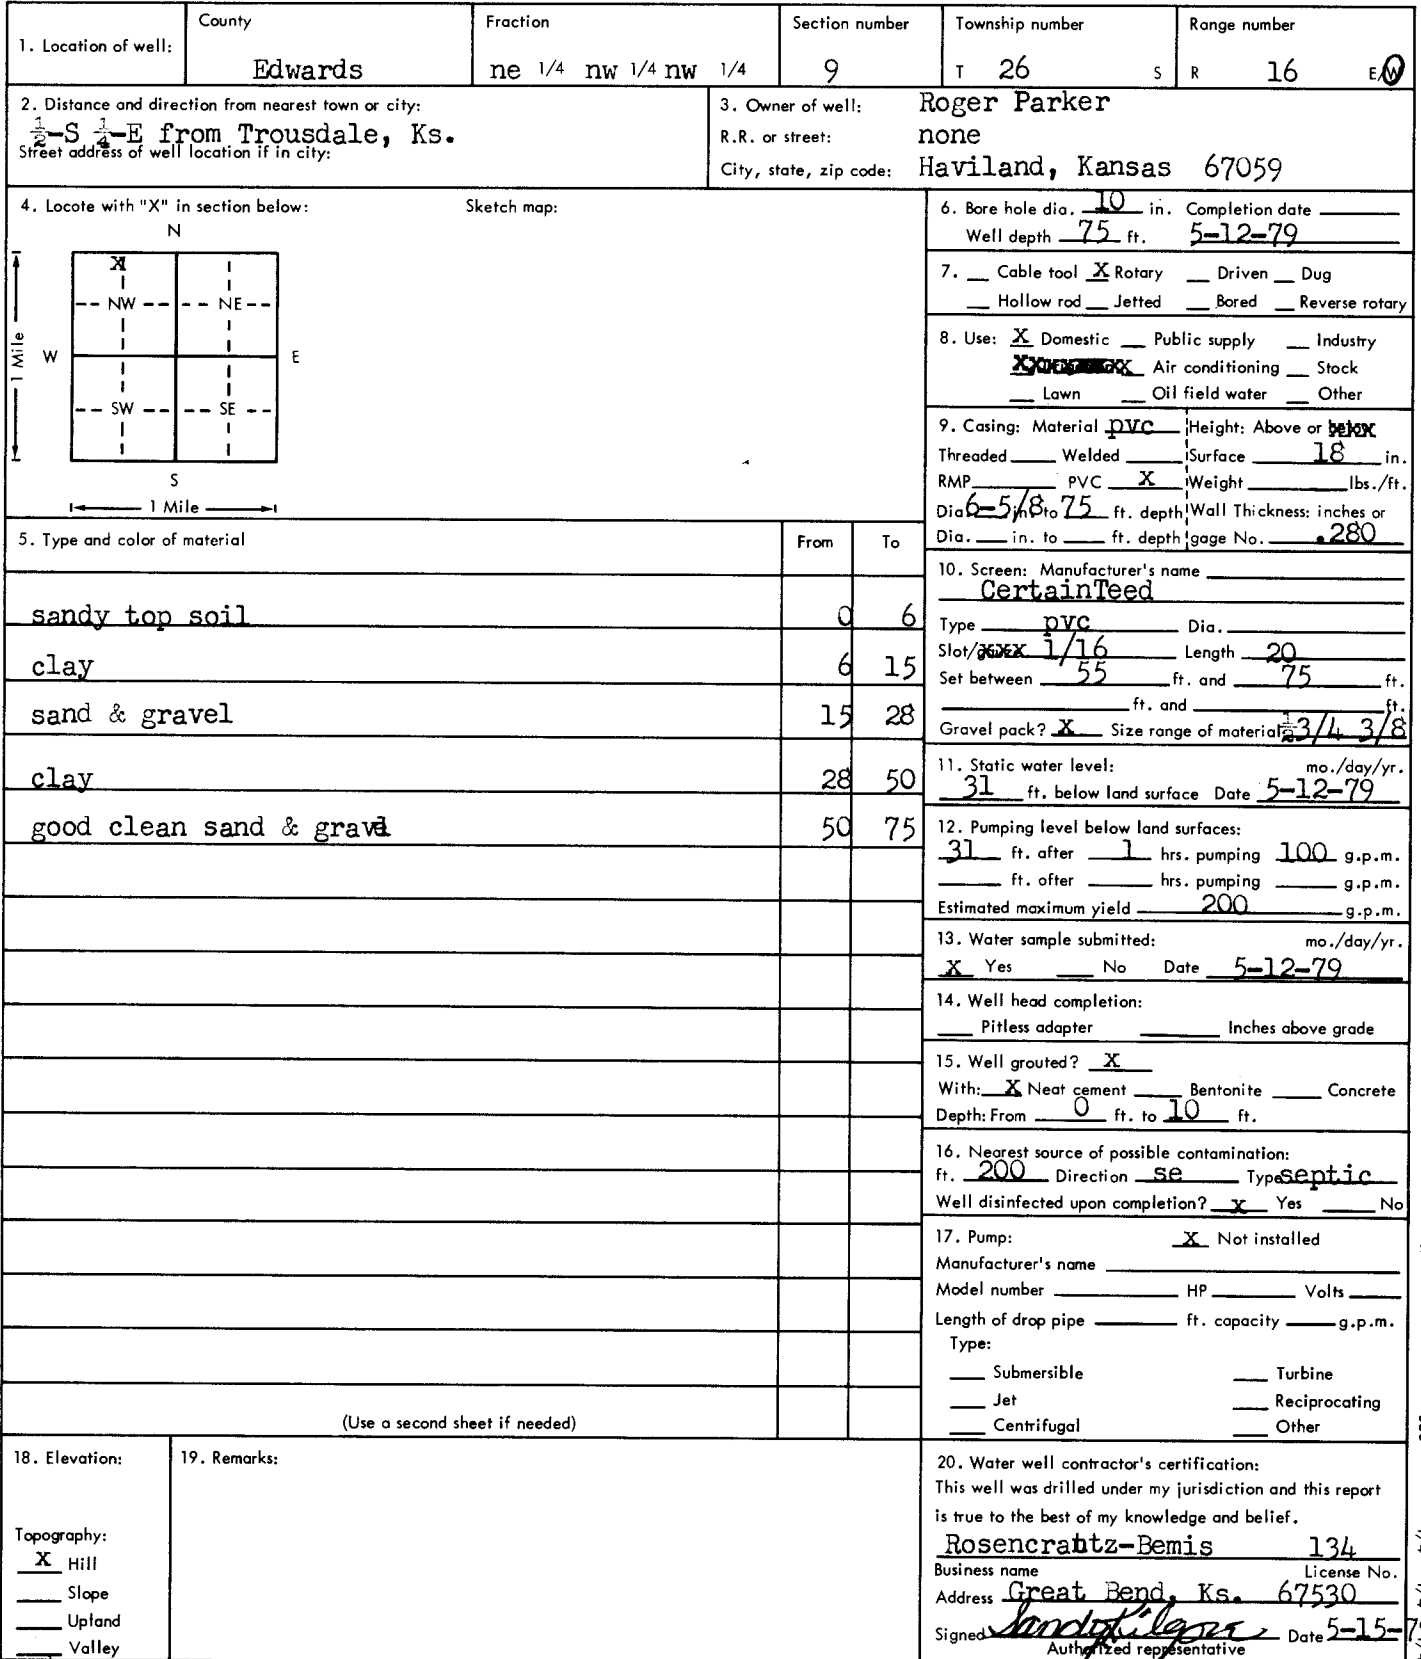 1. Location of well:
County
Edwards
Fraction
ne 1/4 nw 1/4 nw 1/4
Section number
9
Township number
T 26 S
Range number
R 16 E/W
2. Distance and direction from nearest town or city:
½-S ¼-E from Trousdale, Ks.
Street address of well location if in city:
3. Owner of well: Roger Parker
R.R. or street: none
City, state, zip code: Haviland, Kansas 67059
4. Locote with "X" in section below:
Sketch map:
N
X
NW NE
W E
1 Mile
SW SE
S
1 Mile
5. Type and color of material From To
sandy top soil 0 6
clay 6 15
sand & gravel 15 28
clay 28 50
good clean sand & gravel 50 75
(Use a second sheet if needed)
6. Bore hole dia. 10 in. Completion date
Well depth 75 ft. 5-12-79
7. __ Cable tool X Rotary __ Driven __ Dug
__ Hollow rod __ Jetted __ Bored __ Reverse rotary
8. Use: X Domestic __ Public supply __ Industry
Air conditioning __ Stock
__ Lawn __ Oil field water __ Other
9. Casing: Material pvc Height: Above or
Threaded __ Welded __ Surface 18 in.
RMP __ PVC X Weight __ lbs./ft.
Dia 6-5/8 in to 75 ft. depth Wall Thickness: inches or
Dia. __ in. to __ ft. depth gage No. .280
10. Screen: Manufacturer's name
CertainTeed
Type pvc Dia.
Slot/ 1/16 Length 20
Set between 55 ft. and 75 ft.
__ ft. and __ ft.
Gravel pack? X Size range of material ½ 3/4 3/8
11. Static water level: mo./day/yr.
31 ft. below land surface Date 5-12-79
12. Pumping level below land surfaces:
31 ft. after 1 hrs. pumping 100 g.p.m.
__ ft. ofter __ hrs. pumping __ g.p.m.
Estimated maximum yield 200 g.p.m.
13. Water sample submitted: mo./day/yr.
X Yes __ No Date 5-12-79
14. Well head completion:
__ Pitless adapter __ Inches above grade
15. Well grouted? X
With: X Neat cement __ Bentonite __ Concrete
Depth: From 0 ft. to 10 ft.
16. Nearest source of possible contamination:
ft. 200 Direction se Type septic
Well disinfected upon completion? X Yes __ No
17. Pump: X Not installed
Manufacturer's name
Model number __ HP __ Volts __
Length of drop pipe __ ft. capacity __ g.p.m.
Type:
__ Submersible __ Turbine
__ Jet __ Reciprocating
__ Centrifugal __ Other
18. Elevation:
Topography:
X Hill
__ Slope
__ Upland
__ Valley
19. Remarks:
20. Water well contractor's certification:
This well was drilled under my jurisdiction and this report
is true to the best of my knowledge and belief.
Rosencrantz-Bemis 134
Business name License No.
Address Great Bend, Ks. 67530
Signed Sandy Kilgore Date 5-15-7
Authorized representative